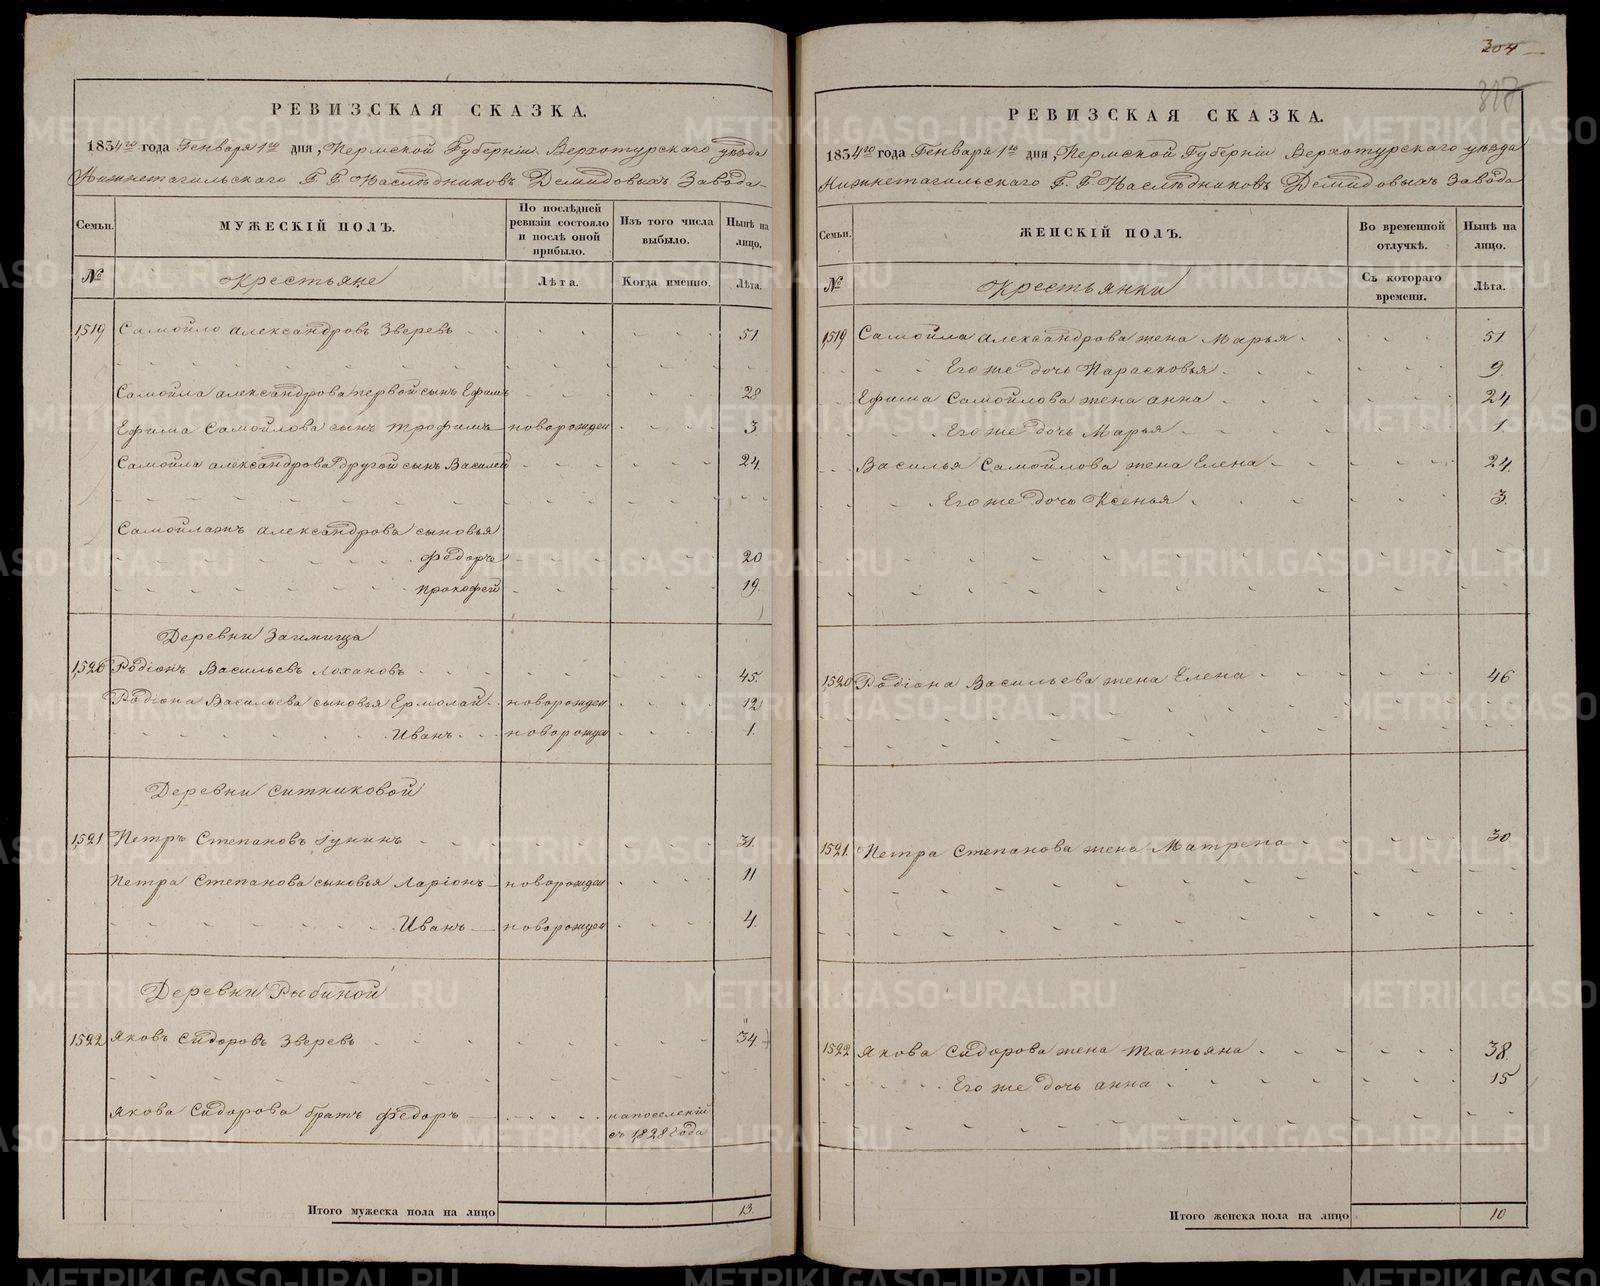 РЕВИЗСКАЯ СКАЗКА.
1834го года Генваря 1го дня, Пермской Губернiи Верхотурского уѣзда
Нижнетагильского Г. Г. Наслѣдниковъ Демидовыхъ Завода
Семьи.
МУЖЕСКIЙ ПОЛЪ.
По послѣдней ревизiи состояло и послѣ оной прибыло.
Изъ того числа выбыло.
Нынѣ на лицо.
№ Крестьяне Лѣта. Когда именно. Лѣта.
1519 Самойло Александровъ Зверевъ 51
Самойла Александрова первой сынъ Ефимъ 28
Ефима Самойлова сынъ Трофимъ новорожден 3
Самойла Александрова другой сынъ Василей 24
Самойлажъ Александрова сыновья
Федоръ 20
Прокофей 19
Деревни Заимища
1520 Родiонъ Васильевъ Лохановъ 45
Родiона Васильева сыновья Ермолай новорожден 12
Иванъ новорожден 1
Деревни Ситниковой
1521 Петръ Степановъ Гунинъ 31
Петра Степанова сыновья Ларiонъ новорожден 11
Иванъ новорожден 4
Деревни Рыбиной
1522 Яковъ Сидоровъ Зверевъ 34
Якова Сидорова братъ Федоръ на поселенiй
съ 1828 года
Итого мужеска пола на лицо 13.
304
317
РЕВИЗСКАЯ СКАЗКА.
1834го года Генваря 1го дня, Пермской Губернiи Верхотурского уѣзда
Нижнетагильского Г. Г. Наслѣдниковъ Демидовыхъ Завода
Семьи.
ЖЕНСКIЙ ПОЛЪ.
Во временной отлучкѣ.
Нынѣ на лицо.
№ Крестьянки Съ котораго времени. Лѣта.
1519 Самойла Александрова жена Марья 51
Его же дочь Парасковья 9
Ефима Самойлова жена Анна 24
Его же дочь Марья 1
Василья Самойлова жена Елена 24
Его же дочь Ксенья 3
1520 Родiона Васильева жена Елена 46
1521. Петра Степанова жена Матрена 30
1522 Якова Сидорова жена Татьяна 38
Его же дочь Анна 15
Итого женска пола на лицо 10
METRIKI.GASO-URAL.RU